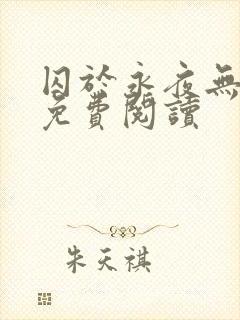 囚於永夜無
免費閱讀
朱天祺